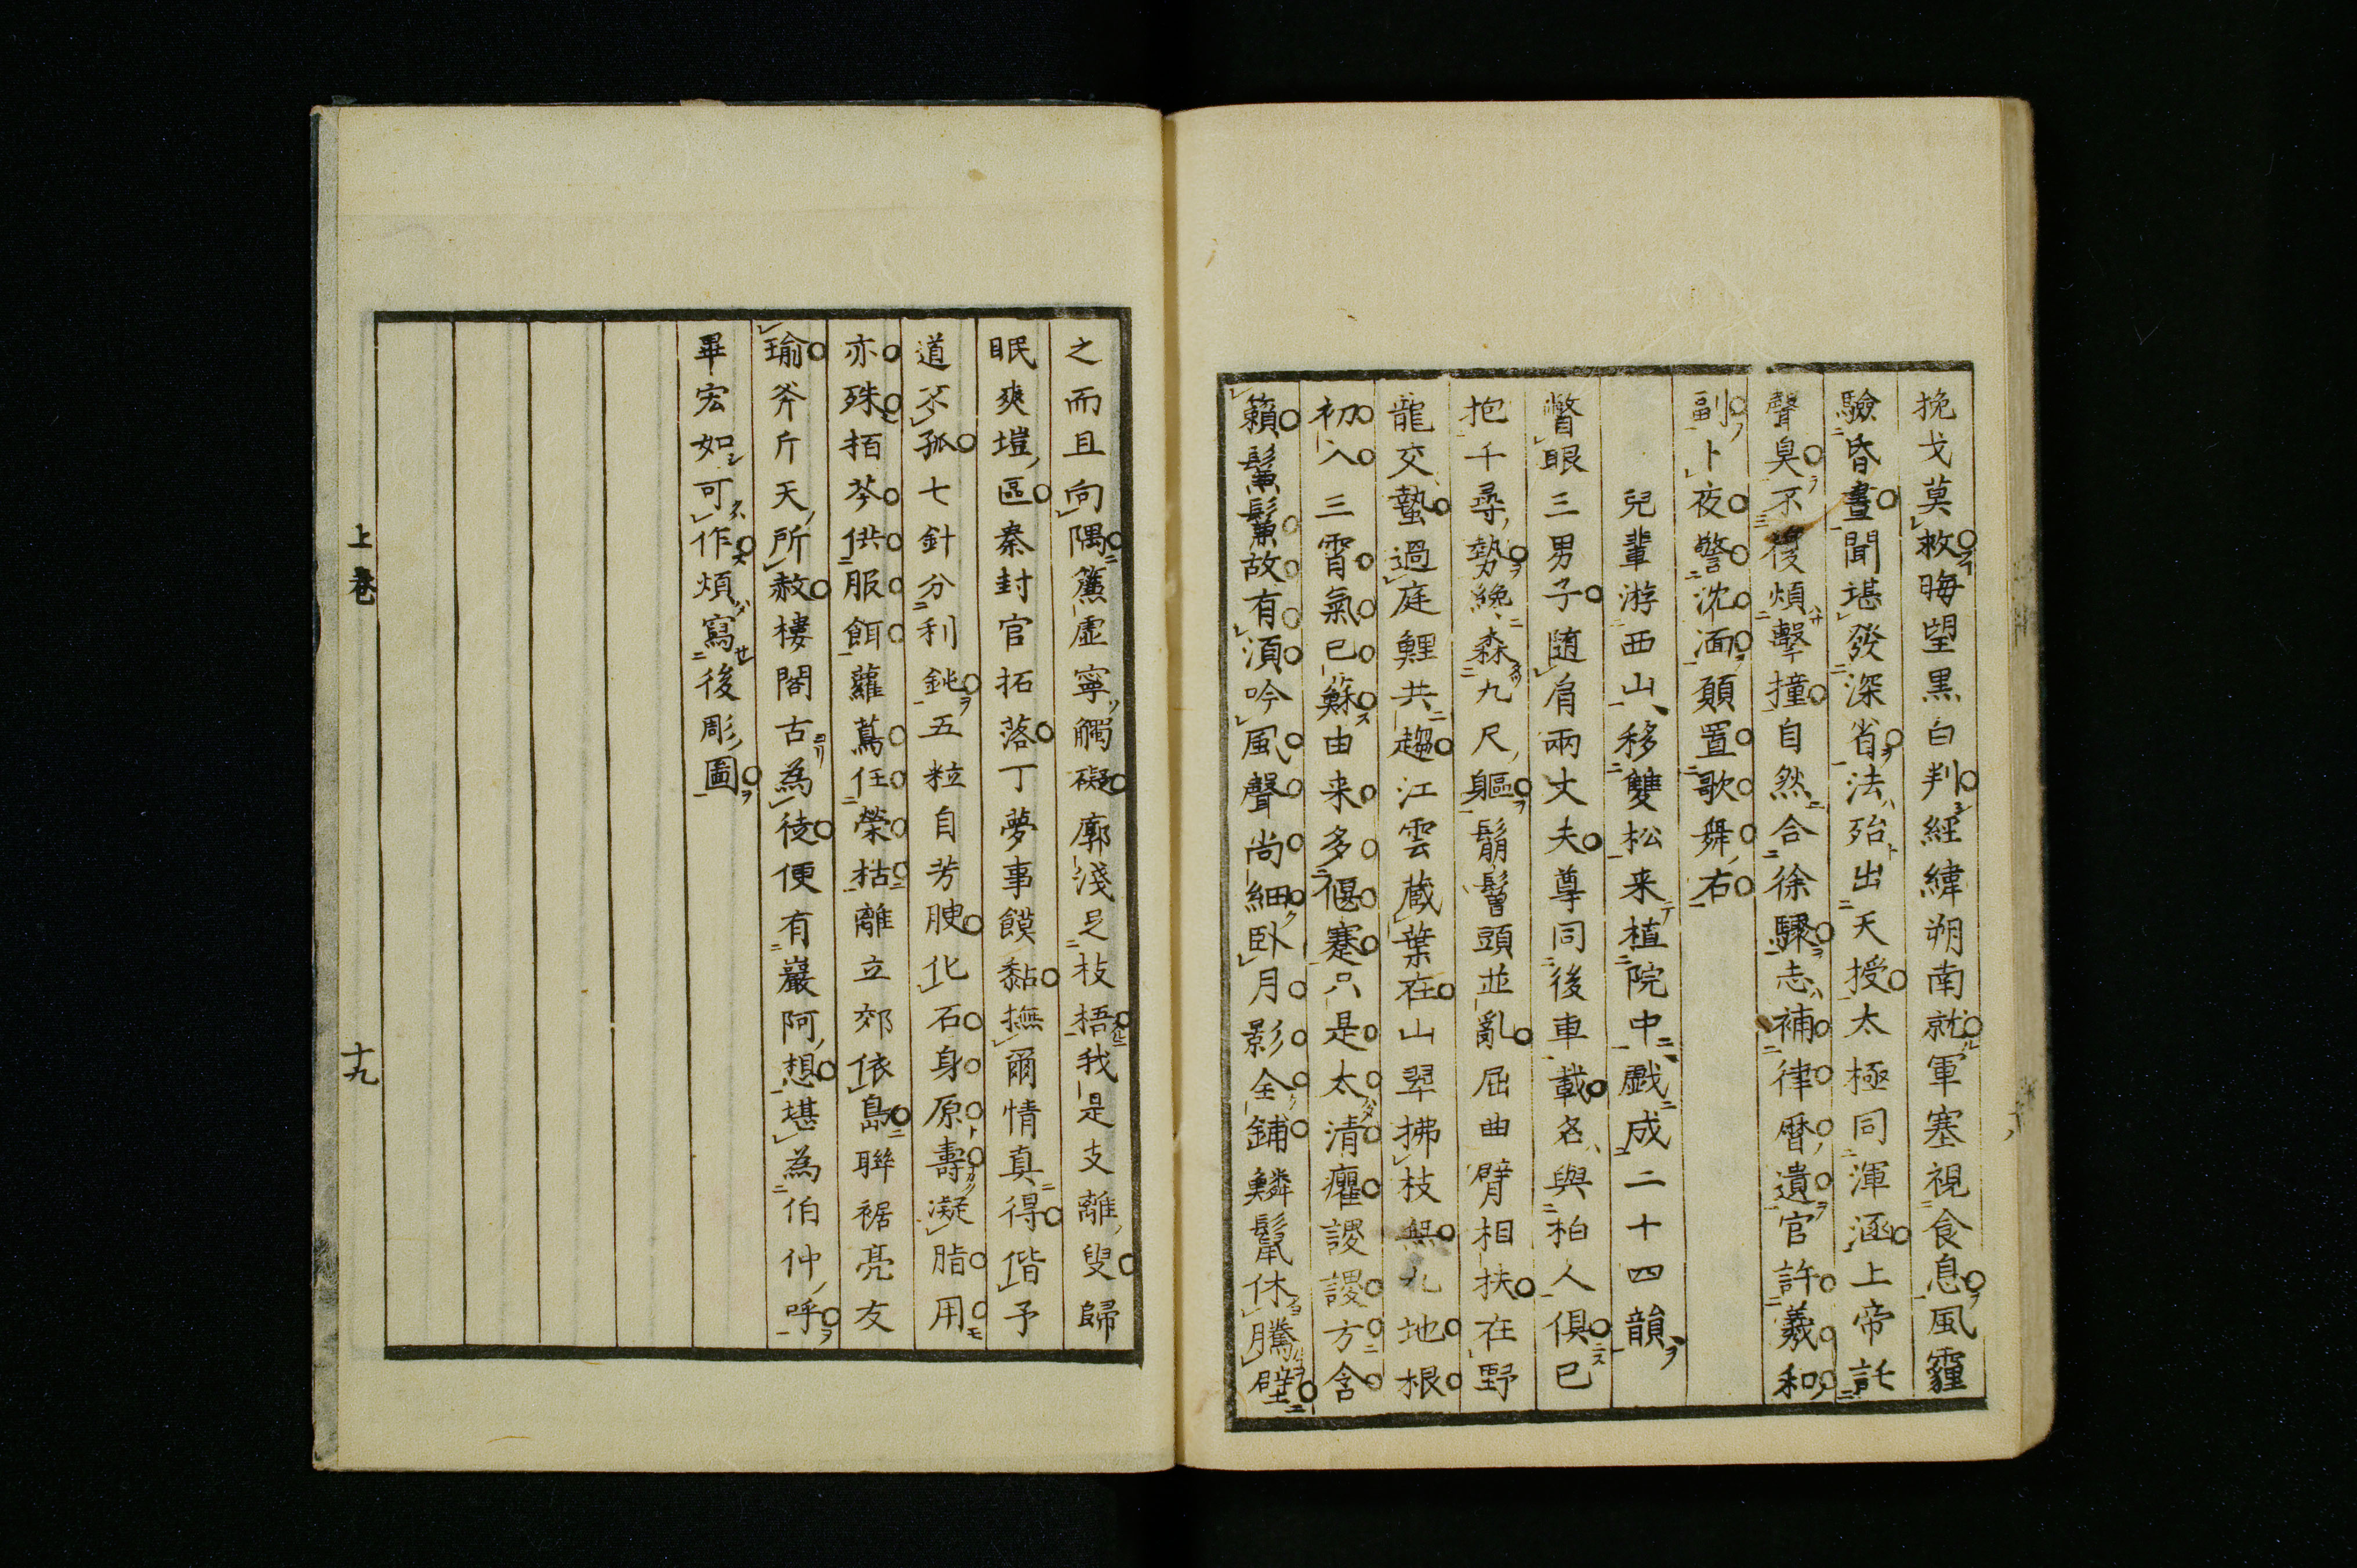 挽戈莫救晦望黒白判経緯朔南就軍塞視食息風霾
驗昏晝聞堪發深省法殆出天授太極同渾涵上帝託
聲臭不復煩擊撞自然合徐驟志補律暦遺官許羲和
副卜夜警沈湎願置歌舞右
兒輩游西山移雙松来植院中戯成二十四韻
瞥眼三男子随肩兩丈夫尊同後車載名與柏人俱已
抱千尋勢纔森九尺軀鬅鬙頭並亂屈曲臂相扶在野
龍交蟄過庭鯉共趨江雲蔵葉在山翠拂枝無九地根
初入三霄氣已蘇由来多偃蹇只是太清癯謖謖方含
籟鬑鬑故有須吟風聲尚細臥月影全鋪鱗鬣休騰壁
之而且向隅簷虚寧觸礙廓淺足枝梧我是支離叟歸
眠爽塏區秦封官拓落丁夢事饃黏撫爾情真得偕予
道不孤七針分利鈍五粒自芳腴化石身原壽凝脂用
亦殊栢苓供服餌蘿蔦任榮枯離立郊依島聯裾亮友
瑜斧斤天所赦樓閣古為徒便有巖阿想堪為伯仲呼
畢宏如可作煩寫後彫圖
上巻
十九